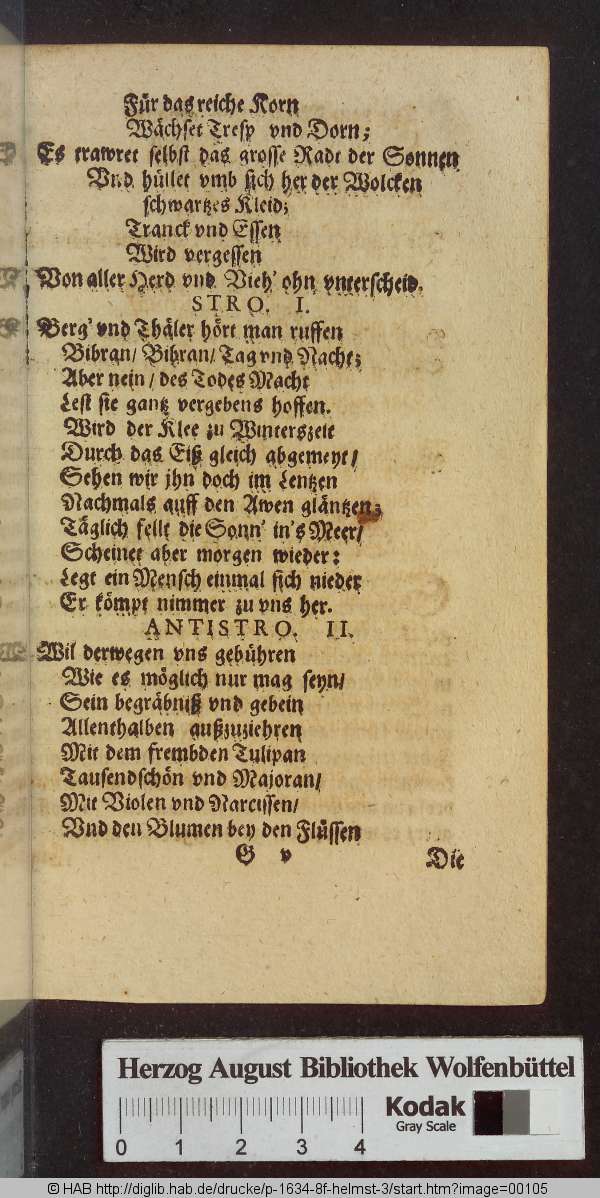 Für das reiche Korn
Wächset Tresp vnd Dorn;
Es trawret selbst das grosse Radt der Sonnen
Vnd hüllet vmb sich her der Wolcken
schwartzes Kleid;
Tranck vnd Essen
Wird vergessen
Von aller Herd vnd Vieh' ohn vnterscheid.
STRO. I.
Berg' vnd Thäler hört man ruffen
Bibran/ Bibran/ Tag vnd Nacht;
Aber nein/ des Todes Macht
Lest sie gantz vergebens hoffen.
Wird der Klee zu Winterszeit
Durch das Eiß gleich abgemeyt/
Sehen wir jhn doch im Lentzen
Nachmals auff den Awen gläntzen;
Täglich fellt die Sonn' in's Meer/
Scheinet aber morgen wieder:
Legt ein Mensch einmal sich nieder
Er kömpt nimmer zu vns her.
ANTISTRO. II.
Wil derwegen vns gebühren
Wie es möglich nur mag seyn/
Sein begräbniß vnd gebein
Allenthalben außzuziehren
Mit dem frembden Tulipan
Tausendschön vnd Majoran/
Mit Violen vnd Narcissen/
Vnd den Blumen bey den Flüssen
G v Die
Herzog August Bibliothek Wolfenbüttel
0 1 2 3 4
Kodak
Gray Scale
© HAB http://diglib.hab.de/drucke/p-1634-8f-helmst-3/start.htm?image=00105